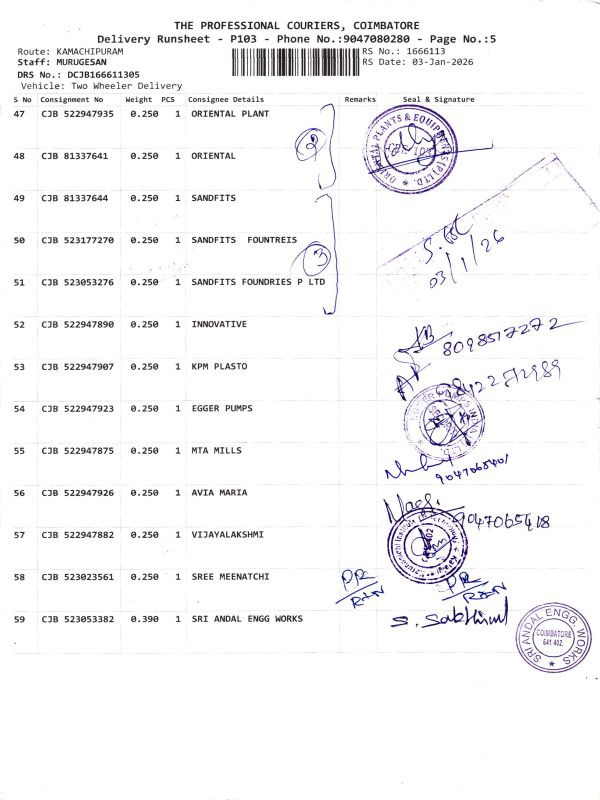 THE PROFESSIONAL COURIERS, COIMBATORE
Delivery Runsheet - P103 - Phone No.:9047080280 - Page No.:5
Route: KAMACHIPURAM RS No.: 1666113
Staff: MURUGESAN RS Date: 03-Jan-2026
DRS No.: DCJB166611305
Vehicle: Two Wheeler Delivery
S No Consignment No Weight PCS Consignee Details Remarks Seal & Signature
47 CJB 522947935 0.250 1 ORIENTAL PLANT
ORIENTAL PLANTS & EQUIPMENTS (P) LTD.
2
48 CJB 81337641 0.250 1 ORIENTAL
49 CJB 81337644 0.250 1 SANDFITS
50 CJB 523177270 0.250 1 SANDFITS FOUNTREIS
3
03/1/26
51 CJB 523053276 0.250 1 SANDFITS FOUNDRIES P LTD
52 CJB 522947890 0.250 1 INNOVATIVE
8098517272
53 CJB 522947907 0.250 1 KPM PLASTO
54 CJB 522947923 0.250 1 EGGER PUMPS
55 CJB 522947875 0.250 1 MTA MILLS
9047065401
56 CJB 522947926 0.250 1 AVIA MARIA
9047065418
57 CJB 522947882 0.250 1 VIJAYALAKSHMI
58 CJB 523023561 0.250 1 SREE MEENATCHI
59 CJB 523053382 0.390 1 SRI ANDAL ENGG WORKS
SRI ANDAL ENGG. WORKS
COIMBATORE
641 402.